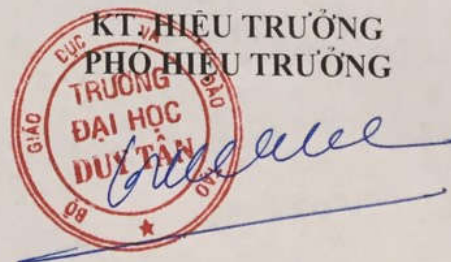 KT. HIỆU TRƯỞNG
PHÓ HIỆU TRƯỞNG
BỘ GIÁO DỤC VÀ ĐÀO TẠO
TRƯỜNG
ĐẠI HỌC
DUY TÂN